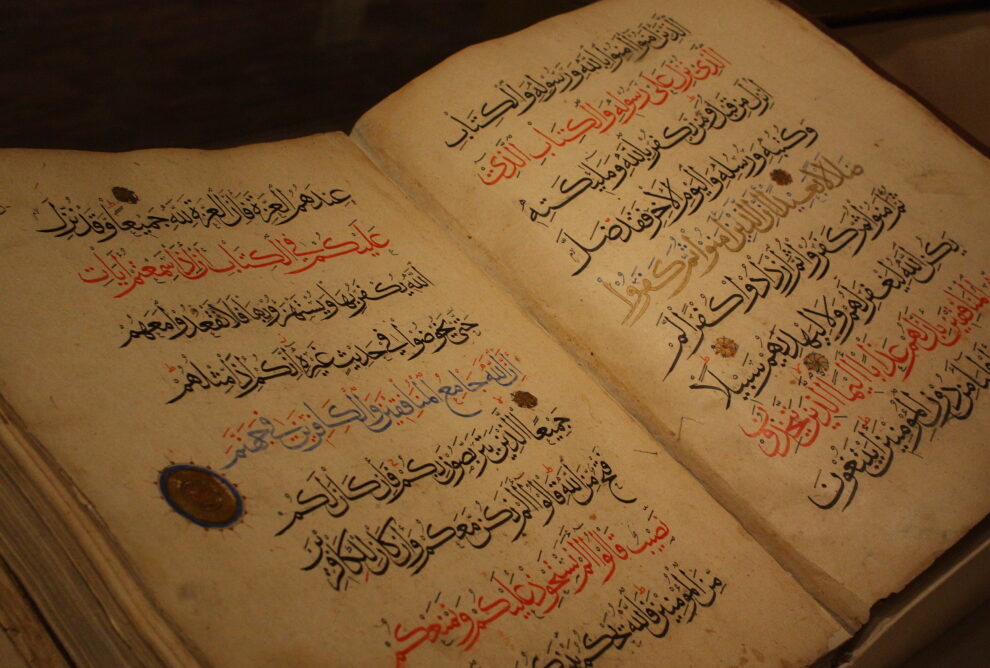 الذين امنوا امنوا بالله ورسوله والكتاب
الذي نزل على رسوله والكتاب الذي
انزل من قبل ومن يكفر بالله وملائكته
وكتبه ورسله واليوم الاخر فقد ضل
ضلالا بعيدا ان الذين امنوا ثم كفروا
ثم امنوا ثم كفروا ثم ازدادوا كفرا لم
يكن الله ليغفر لهم ولا ليهديهم سبيلا
المنافقين بان لهم عذابا اليما الذين يتخذون
اولياء من دون المؤمنين ايبتغون
عندهم العزة فان العزة لله جميعا وقد نزل
عليكم في الكتاب ان اذا سمعتم ايات
الله يكفر بها ويستهزا بها فلا تقعدوا معهم
حتى يخوضوا في حديث غيره انكم اذا مثلهم
ان الله جامع المنافقين والكافرين في جهنم
جميعا الذين يتربصون بكم فان كان لكم
فتح من الله قالوا الم نكن معكم وان كان للكافرين
نصيب قالوا الم نستحوذ عليكم ونمنعكم
من المؤمنين فالله يحكم بينكم